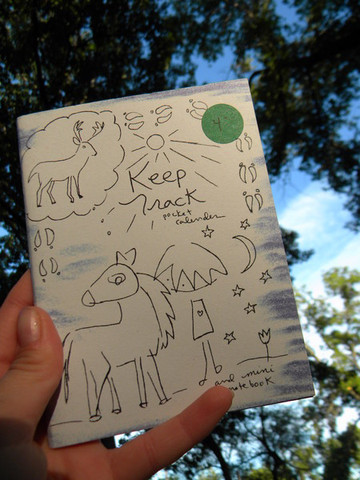 Keep
Track
pocket
calender
and mini
notebook